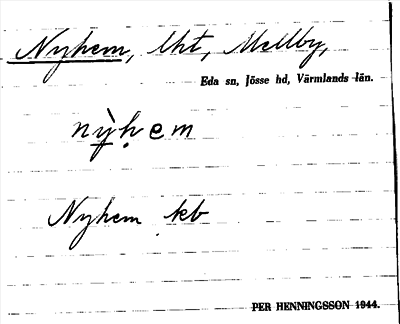 Nyhem, lht, Mellby,
Eda sn, Jösse hd, Värmlands län.
nỳhem
Nyhem kb
PER HENNINGSSON 1944.